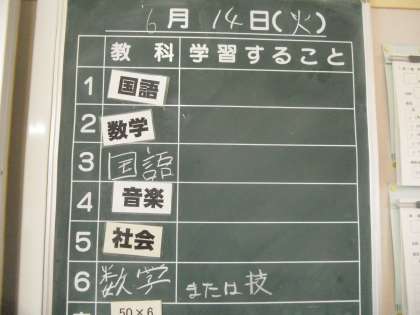 6月14日(火)
教科学習すること
1 国語
2 数学
3 国語
4 音楽
5 社会
6 数学 または 技
50×6